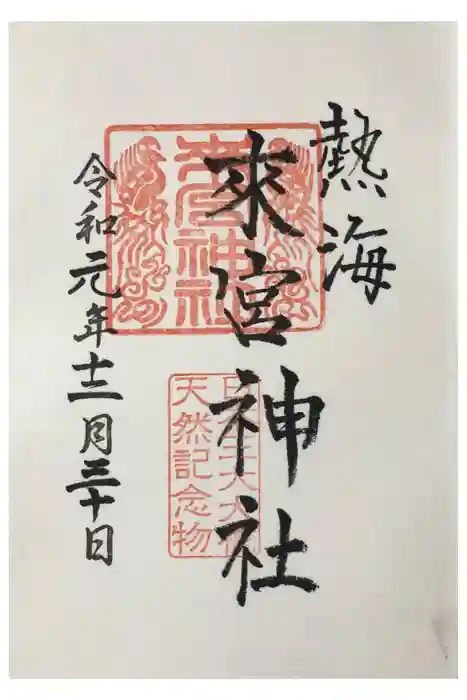 熱海
來宮神社
來宮神社
天然記念物
令和元年十二月三十日